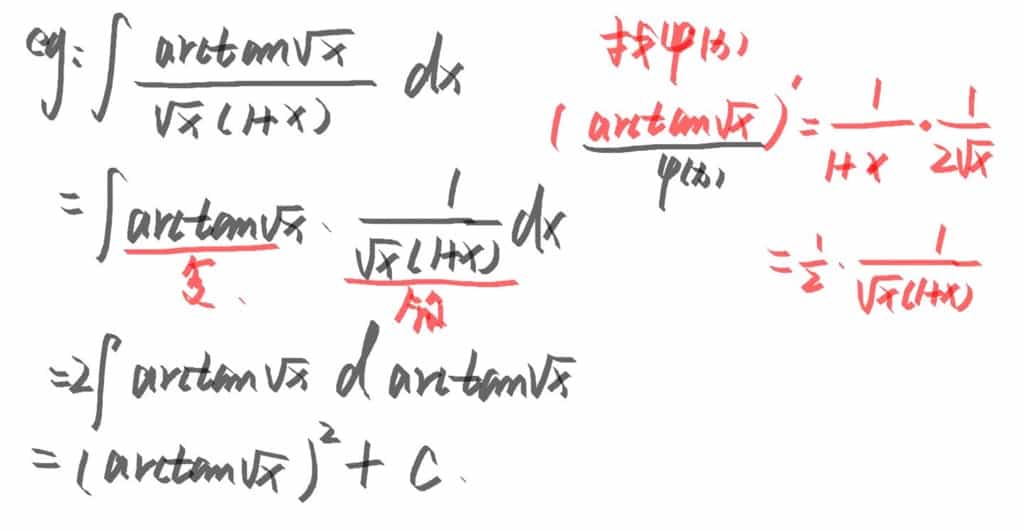 eg: ∫ arctan√x / √x(1+x) dx
= ∫ arctan√x · 1 / √x(1+x) dx
= 2∫ arctan√x d arctan√x
= (arctan√x)² + C.
找φ(x)
(arctan√x)' = 1/(1+x) · 1/(2√x)
φ(x)
= 1/2 · 1 / √x(1+x)